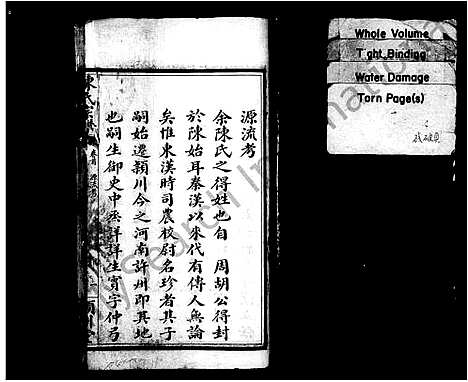 源流考
余陳氏之得姓也自　周胡公得封
於陳始耳秦漢以來代有傳人無論
矣惟東漢時司農校尉名珍者其子
嗣始遷潁川今之河南許州即其地
也嗣生御史中丞詳詳生寔字仲弓
Whole Volume
Tight Binding
Water Damage
Torn Page(s)